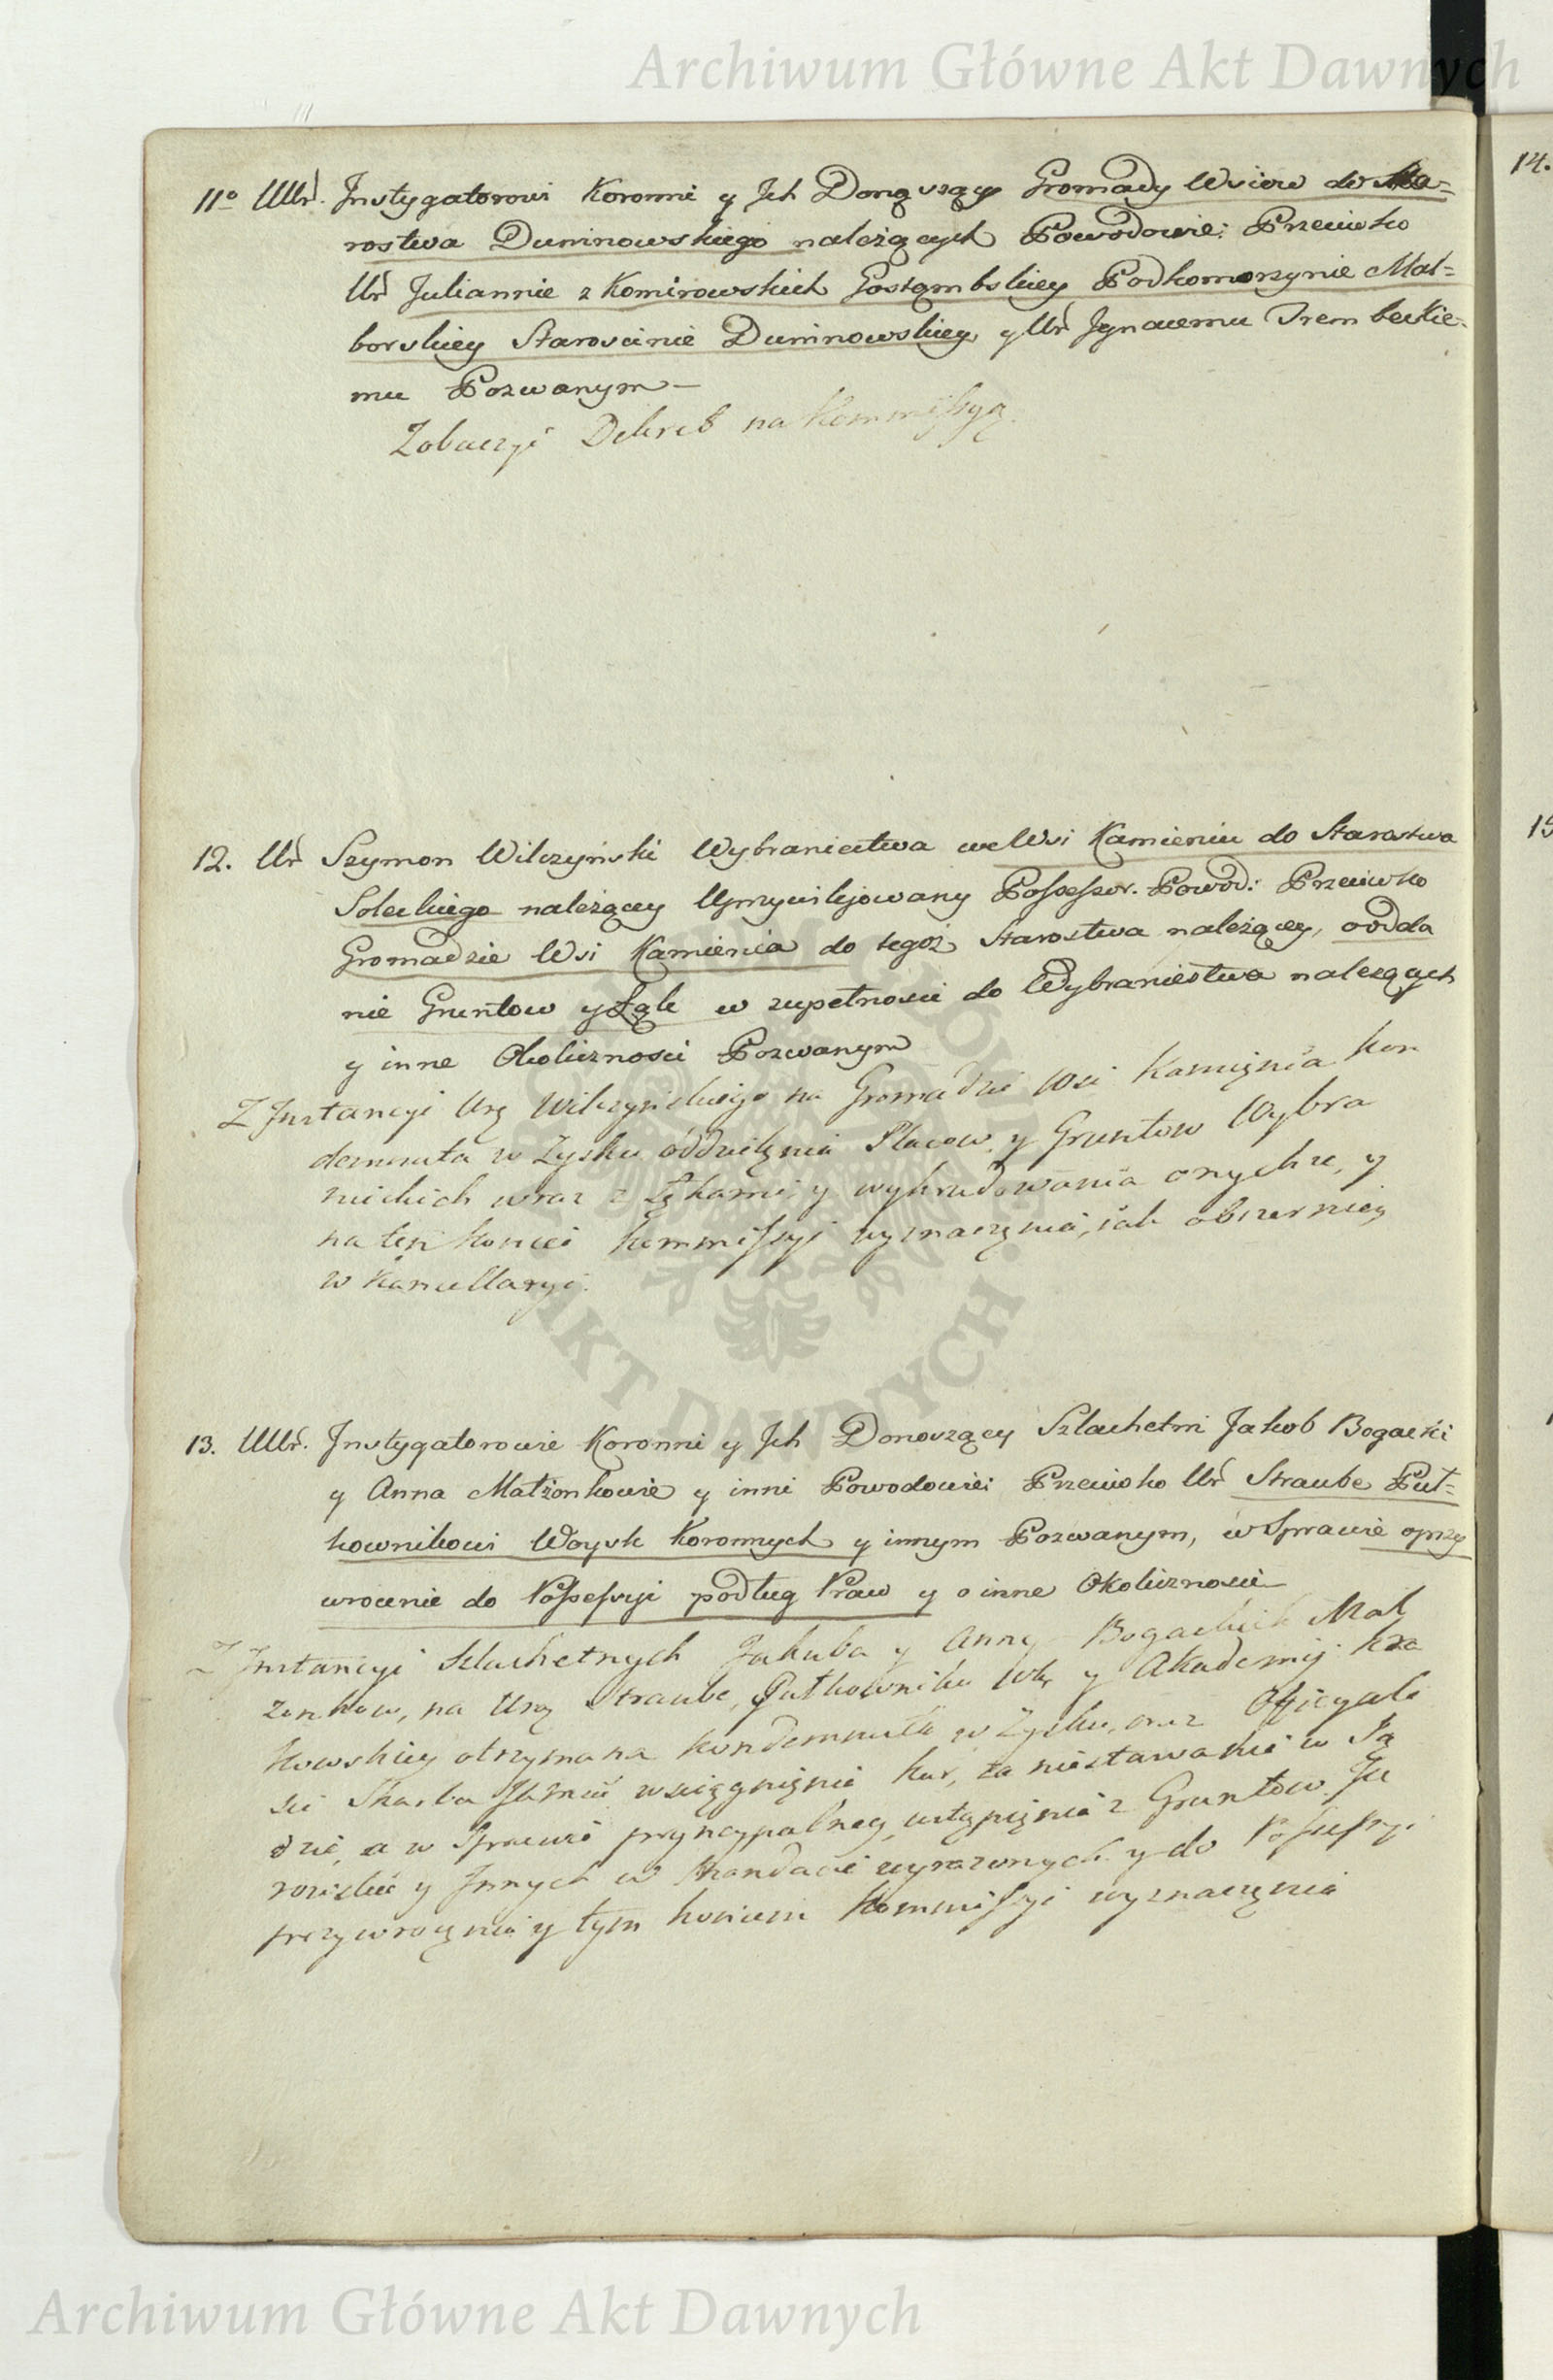 Archiwum Główne Akt Dawnych
14.
11o UUr. Instygatorowi Koronni y Ich Donoszący Gromady Wsiow do Sta=
rostwa Duninowskiego należących Powodowie: Przeciwko
Ur Juliannie z Komirowskich Gostąmbskiey Podkomorzynie Mal=
borskiey Starościnie Duninowskiey y Ur Jgnacemu Trembeckie=
mu Pozwanym –
Zobaczyć Dekret na Kommissyą.
12. Ur Szymon Wilczyński Wybraniectwa we Wsi Kamieniu do Starostwa
15
Soleckiego należącey Uprzywilejowany Possessor. Powod: Przeciwko
Gromadzie Wsi Kamienia do tegoż Starostwa należącey, o odda
nie Gruntow y Łąk w zupełnosci do Wybraniectwa należących
y inne Okolicznosci Pozwanym
Z Instancyi Urg Wilczynskiego na Gromadzie Wsi Kamięnia kon
demnata w Zysku oddzielęnia Placow y Gruntow Wybra
nickich wraz z Łękami y wykrudowania onychże, y
na tęn koniec kommissyi wyznaczęnia, iak obszerniey
w Kancellaryi.
13. UUr. Instygatorowie Koronni y Ich Donoszący Szlachetni Jakob Bogacki
y Anna Małżonkowie y inni Powodowie: Przeciwko Ur Straube Puł=
kownikowi Woysk Koronnych y innym Pozwanym, w Sprawie o przy
wrocenie do Possessyi podług Praw y o inne Okolicznosci
Z Instancyi Szlachetnych Jakuba y Anny Bogackich Mał
żonkow, na Urg Straube, Pułkowniku Wk y Akademij Kra
kowskiey otrzymana kondemnata w Zysku, oraz Oficyali
sci Skarbu wsciągnięnia kar, za niestawanie w Są
dzie, a w Sprawie pryncypalney ustąpięnia z Gruntow Ju
rowiskie y Innych w Mandacie wyrazonych y do Possessyi
przywrocęnia y tym koncem Kommissyi wyznaczęnia
ARCHIWUM GŁÓWNE AKT DAWNYCH
Archiwum Główne Akt Dawnych